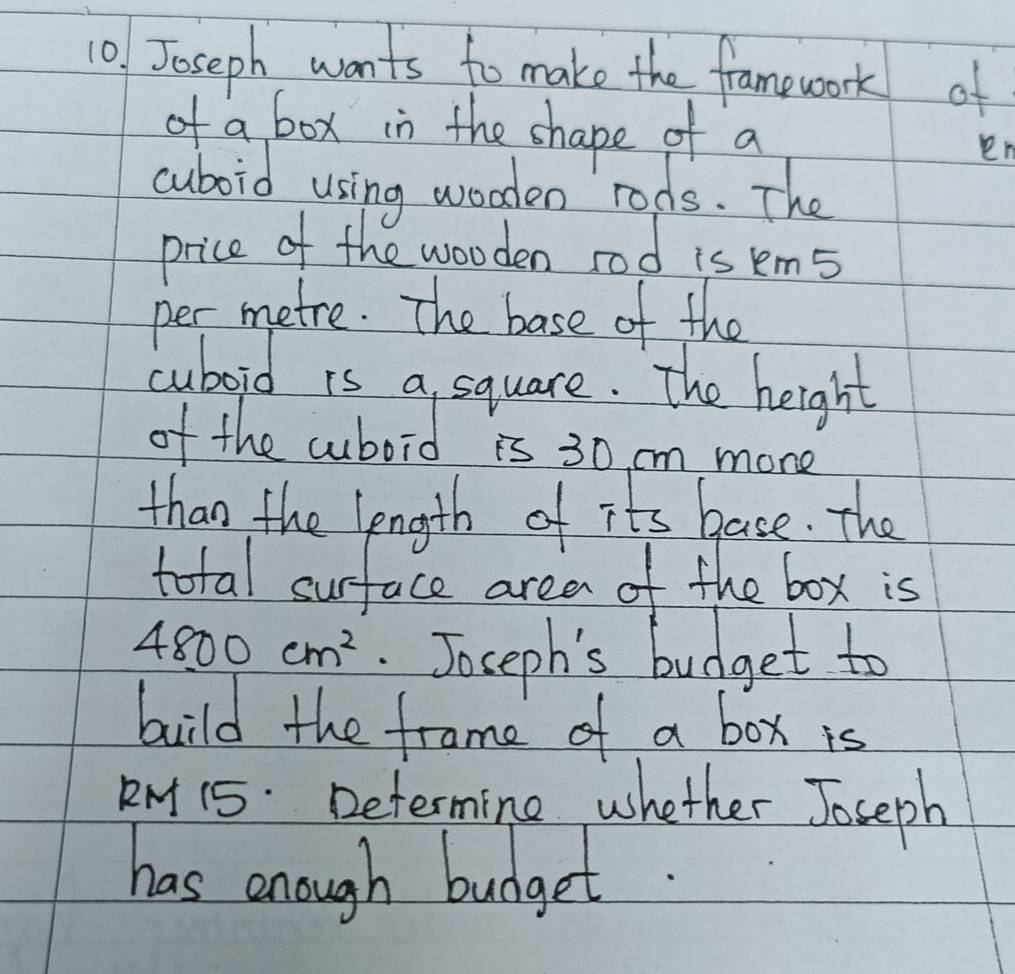 10. Joseph wants to make the framework of
of a box in the shape of a
cuboid using wooden rods. The
price of the wooden rod is RM5
per metre. The base of the
cuboid is a square. The height
of the cuboid is 30 cm more
than the length of its base. The
total surface area of the box is
4800 cm². Joseph's budget to
build the frame of a box is
RM 15. Determine whether Joseph
has enough budget.